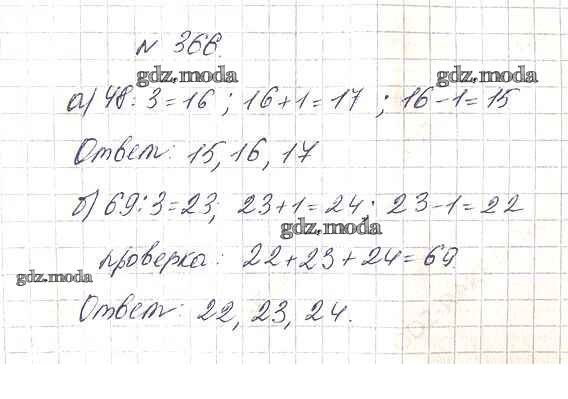 № 366.
gdz.moda gdz.moda
а) 48:3=16; 16+1=17; 16-1=15
Ответ: 15, 16, 17
б) 69:3=23; 23+1=24; 23-1=22
gdz.moda
проверка: 22+23+24=69.
gdz.moda
Ответ: 22, 23, 24.